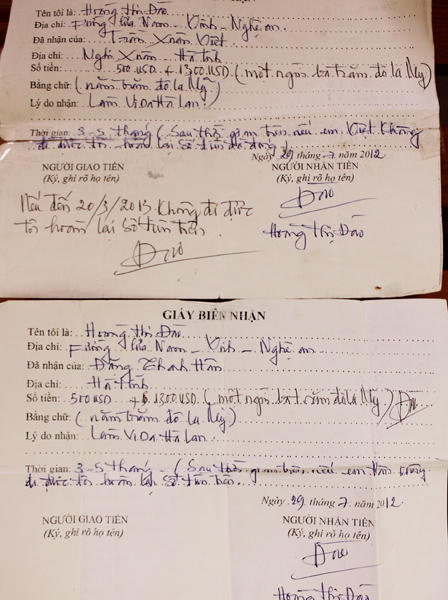 Tên tôi là: Hoàng Thị Đào
Địa chỉ: Phường Cửa Nam - Vinh - Nghệ an
Đã nhận của: Trần Xuân Việt
Địa chỉ: Nghi Xuân Hà tĩnh
Số tiền: 500 USD + 1300 USD (một ngàn ba trăm đô la Mỹ)
Bằng chữ: (năm trăm đô la Mỹ)
Lý do nhận: Làm ViDa Hà Lan
Thời gian: 3-5 tháng (Sau thời gian trên nếu em Việt không
đi được tôi hoàn lại số tiền đã
Ngày 29 tháng 7 năm 2012
NGƯỜI GIAO TIỀN
(Ký, ghi rõ họ tên)
NGƯỜI NHẬN TIỀN
(Ký, ghi rõ họ tên)
Nếu đến 20/3/2013 không đi được
tôi hoàn lại số tiền trên
Đào
Đào
Hoàng Thị Đào
GIẤY BIÊN NHẬN
Tên tôi là: Hoàng Thị Đào
Địa chỉ: Phường Cửa Nam - Vinh - Nghệ an
Đã nhận của: Đặng Thanh Hân
Địa chỉ: Hà tĩnh
Số tiền: 500 USD + 1300 USD (một ngàn ba trăm đô la Mỹ) Đào
Bằng chữ: (năm trăm đô la Mỹ)
Lý do nhận: Làm ViDa Hà Lan
Thời gian: 3-5 tháng (Sau thời gian trên nếu em Hân không
đi được tôi hoàn lại số tiền trên
Ngày 29 tháng 7 năm 2012
NGƯỜI GIAO TIỀN
(Ký, ghi rõ họ tên)
NGƯỜI NHẬN TIỀN
(Ký, ghi rõ họ tên)
Đào
Hoàng Thị Đào